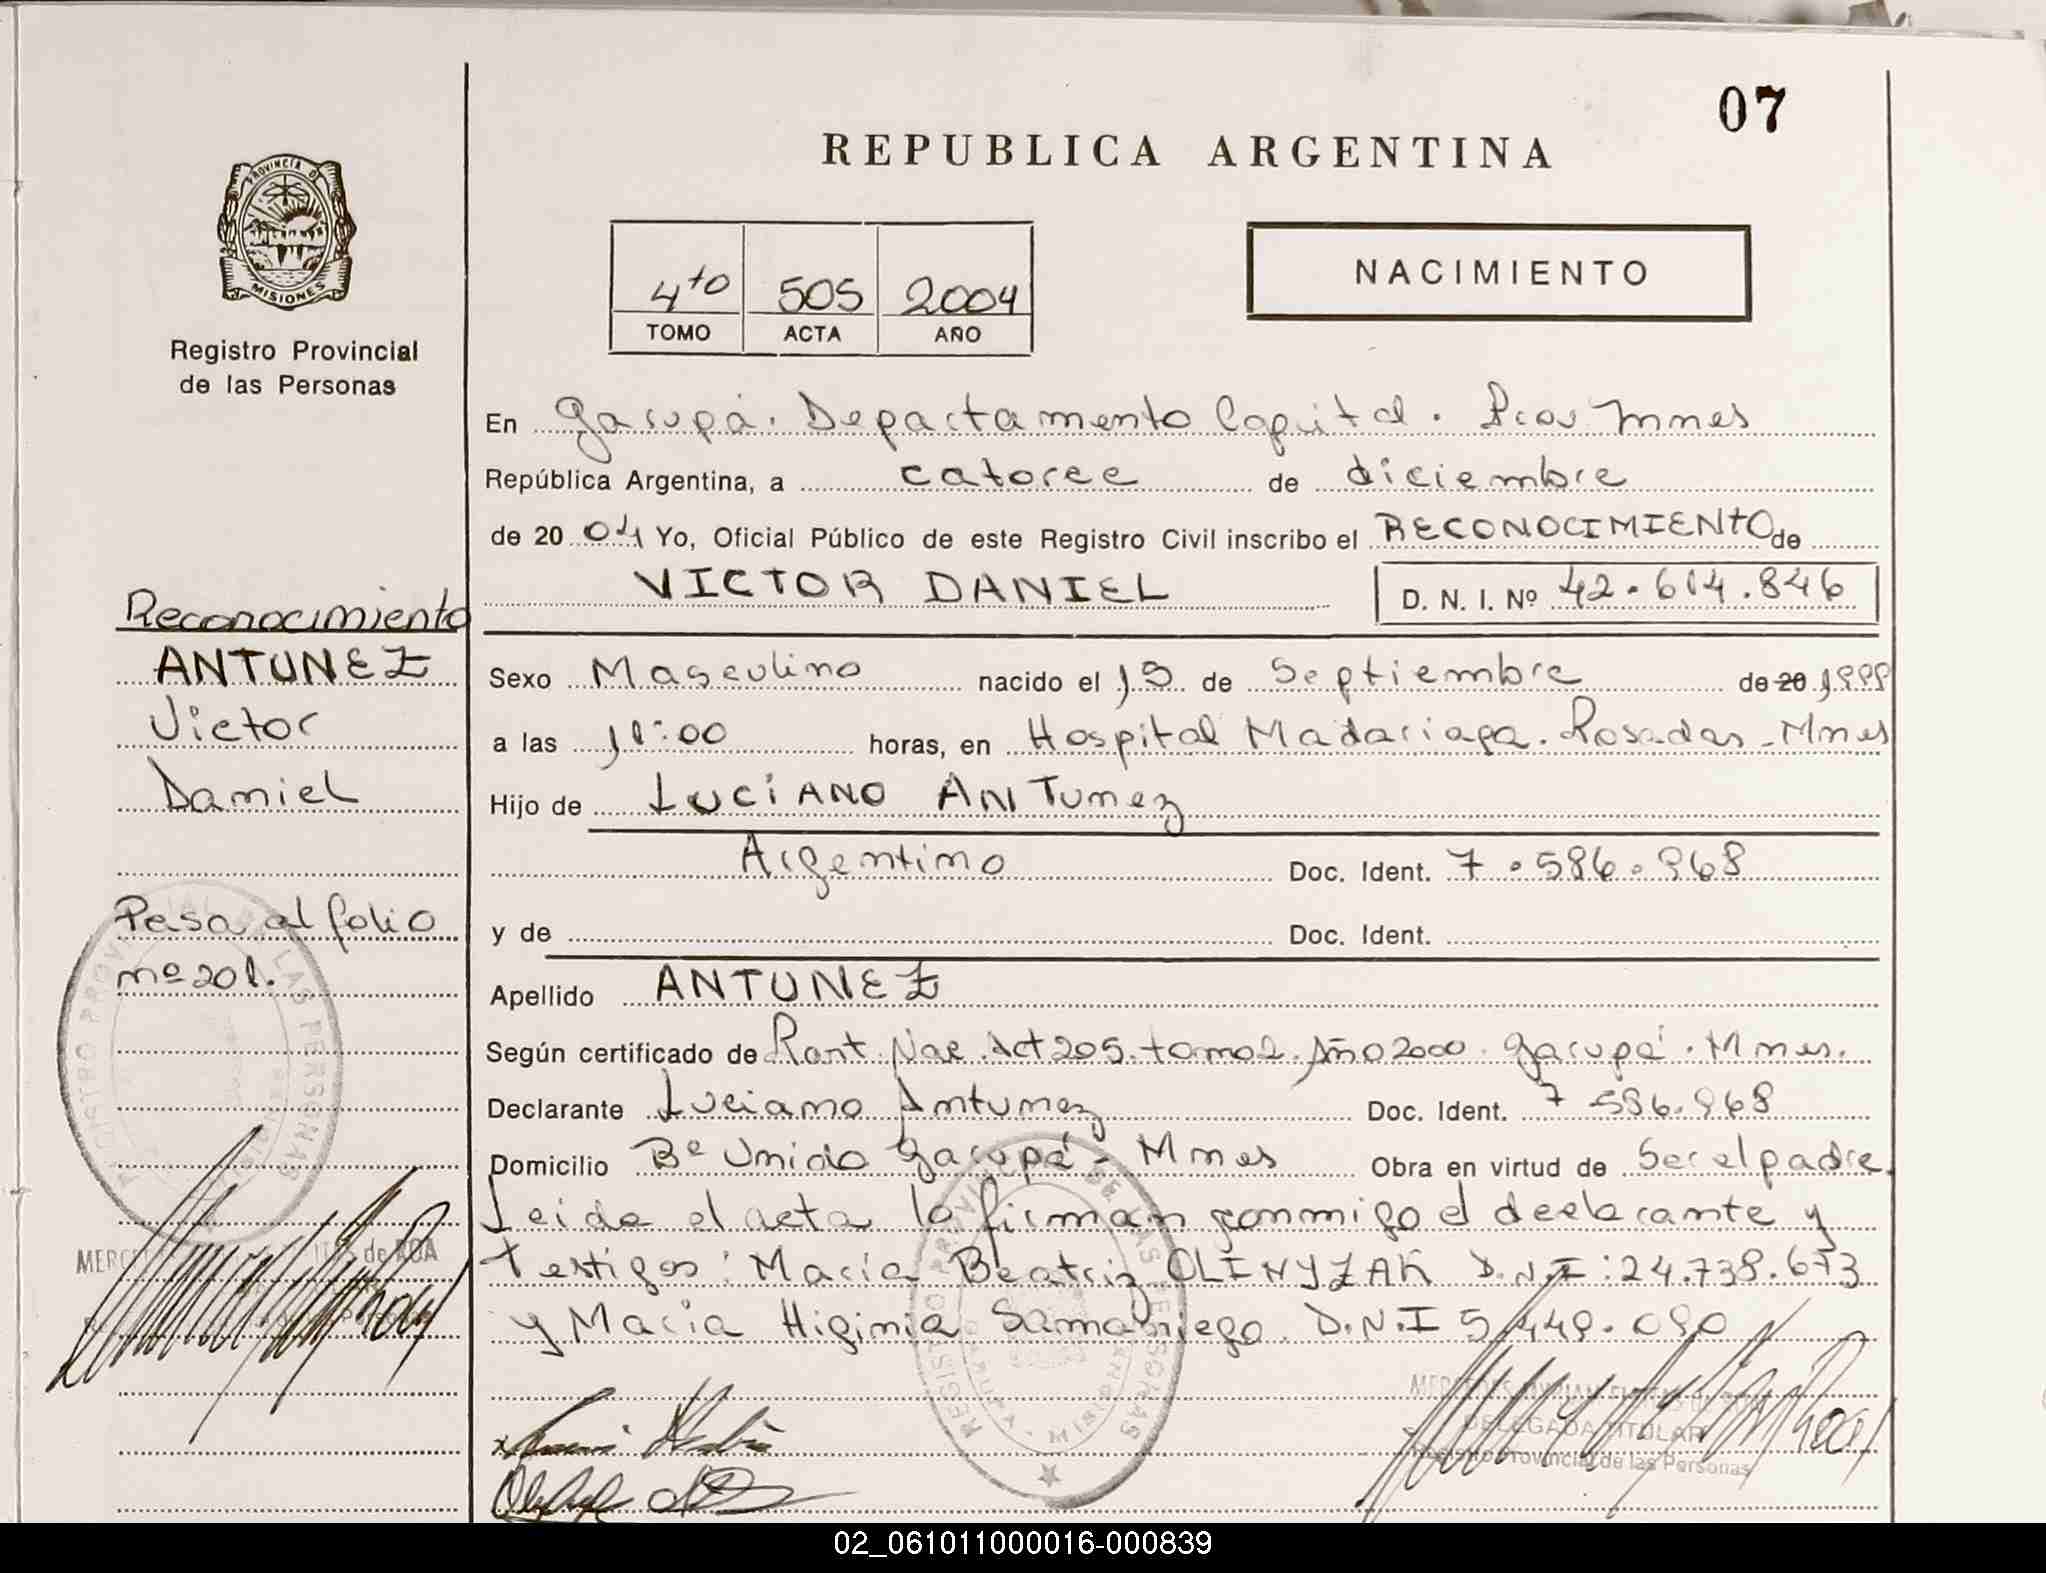 07
REPUBLICA ARGENTINA
PROVINCIA DE
MISIONES
Registro Provincial
de las Personas
4to 505 2004
TOMO ACTA AÑO
NACIMIENTO
En Garupá. Departamento Capital. Pcia Mnes
República Argentina, a catorce de diciembre
de 20 04 Yo, Oficial Público de este Registro Civil inscribo el RECONOCIMIENTO de
VICTOR DANIEL D. N. I. Nº 42.614.846
Reconocimiento
ANTUNEZ
Victor
Daniel
Pasa al folio
nº 201.
Sexo Masculino nacido el 15 de Septiembre de 20 1999
a las 11:00 horas, en Hospital Madariaga. Posadas - Mnes
Hijo de LUCIANO ANTUNEZ
Argentino Doc. Ident. 7.586.968
y de Doc. Ident.
Apellido ANTUNEZ
Según certificado de Nac. Act 205. tomo 2. Año 2000. Garupá. Mnes.
Declarante Luciano Antunez Doc. Ident. 7 586.968
Domicilio Bº Unido Garupá - Mnes Obra en virtud de Ser el padre.
Leida el acta la firman conmigo el declarante y
testigos: Maria Beatriz OLINYZAK D.N.I: 24.738.673
y Maria Higinia Samaniego. D.N.I 5.449.090
REGISTRO PROVINCIAL DE LAS PERSONAS
de ROA
REGISTRO PROVINCIAL DE LAS PERSONAS
DELEGADA TITULAR
Registro Provincial de las Personas
02_061011000016-000839